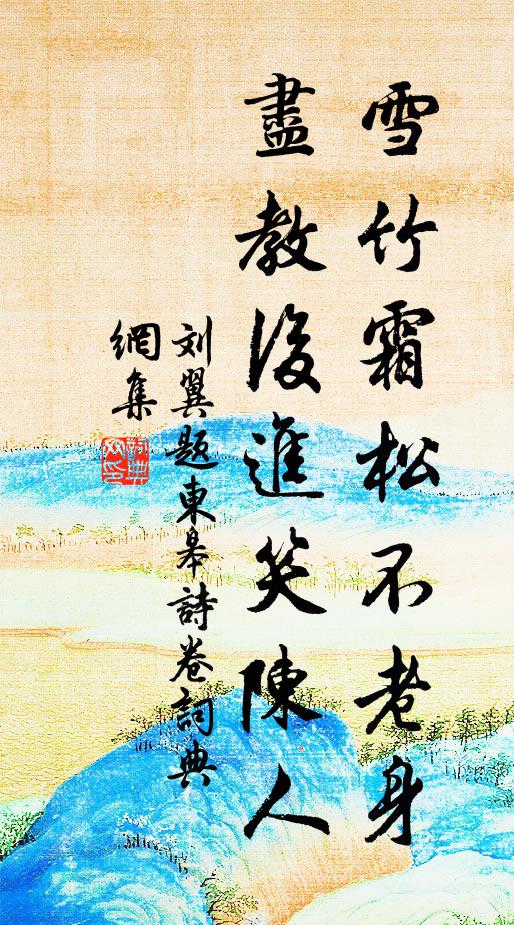 雪竹霜松不老身
盡教後進笑陳人
刘翼题東皋詩卷詞典
網集